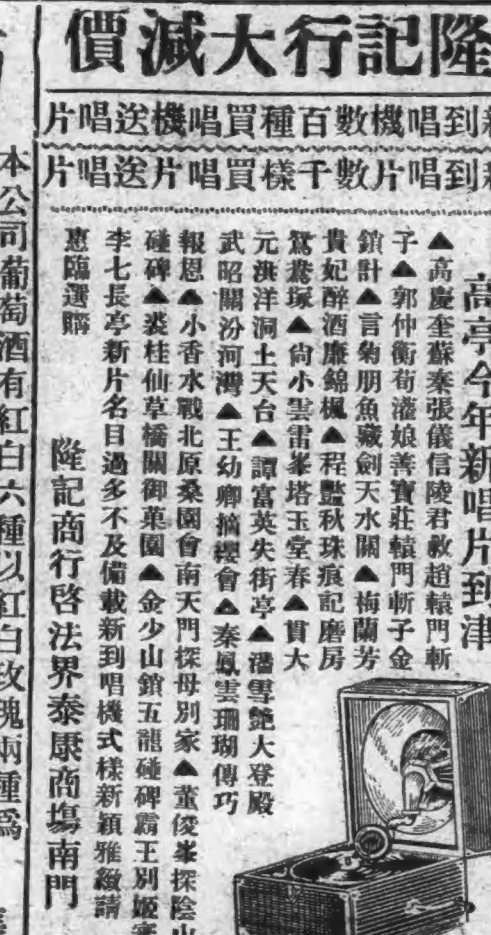 隆記行大減價
到唱機數百種買唱機送唱片
到唱片數千樣買唱片送唱片
高亭今年新唱片到津
▲高慶奎蘇秦張儀信陵君救趙轅門斬
子▲郭仲衡荀灌娘善寶莊轅門斬子金
鎖計▲言菊朋魚藏劍天水關▲梅蘭芳
貴妃醉酒廉錦楓▲程豔秋珠痕記磨房
鴛鴦塚▲尙小雲雷峯塔玉堂春▲貫大
元洪洋洞上天台▲譚富英失街亭▲潘雪艶大登殿
武昭關汾河灣▲王幼卿摘纓會▲秦鳳雲珊瑚傳巧
報恩▲小香水戰北原桑園會南天門探母別家▲董俊峯探陰山
碰碑▲裘桂仙草橋關御菓園▲金少山鎖五龍碰碑霸王別姬
李七長亭新片名目過多不及備載新到唱機式樣新穎雅緻請
惠臨選購
隆記商行啓法界泰康商塲南門
本公司葡萄酒有紅白六種以紅白玫瑰兩種爲